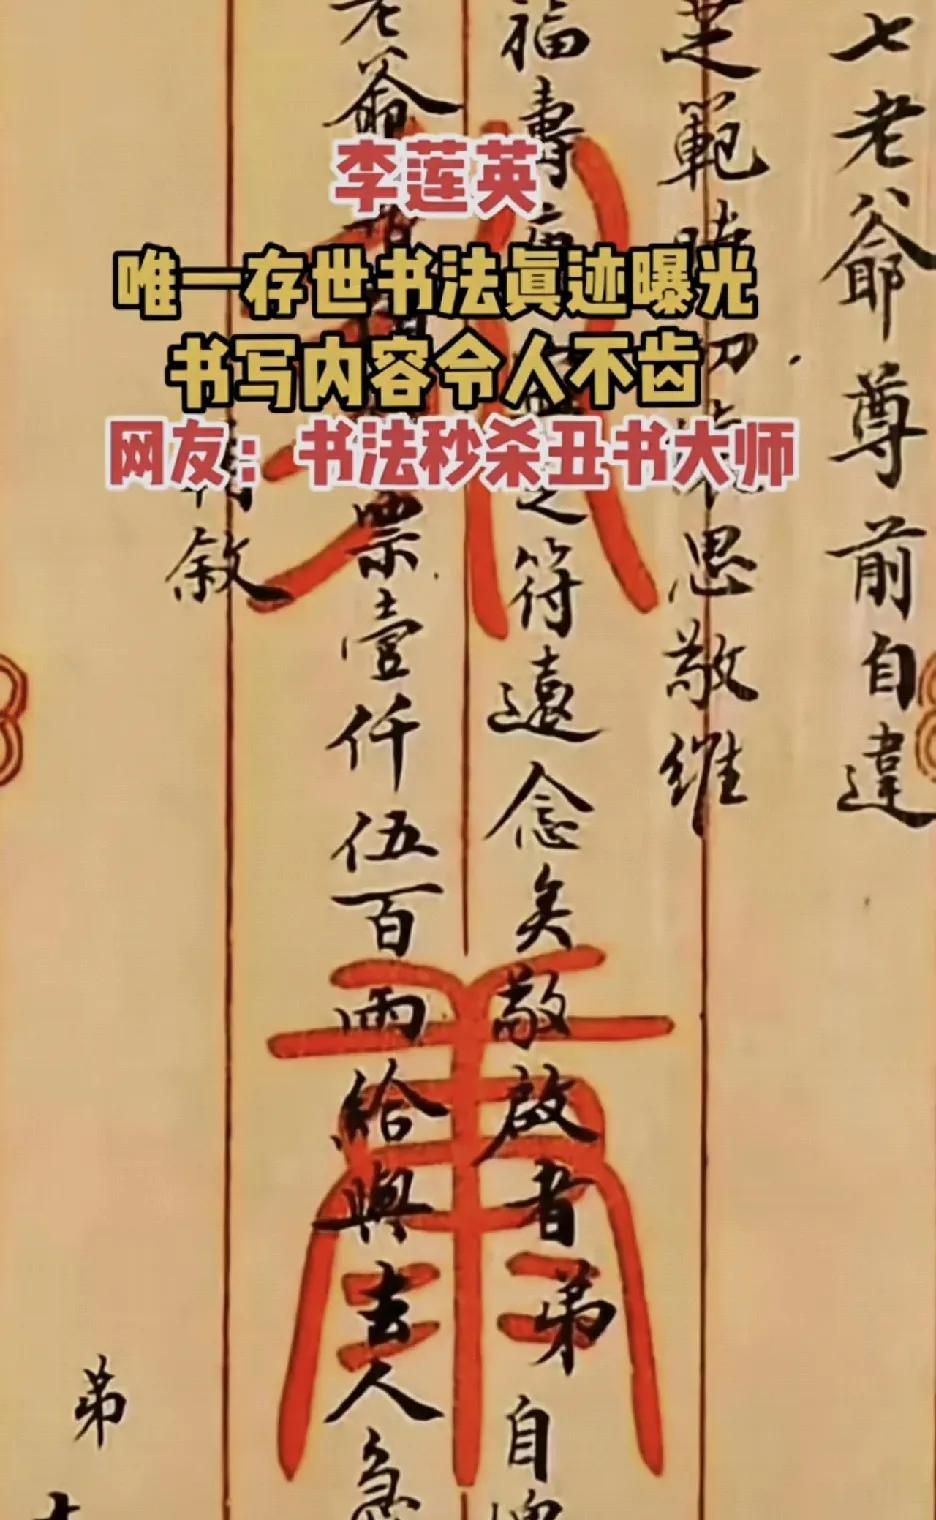 李莲英
唯一存世书法眞迹曝光
书写内容令人不齿
网友：书法秒杀丑书大师
七老爺尊前自違
芝範時切 思敬維
福壽 之符遠念矣敬啟者弟自
老爺 票壹仟伍百兩給與去人急
敘
弟